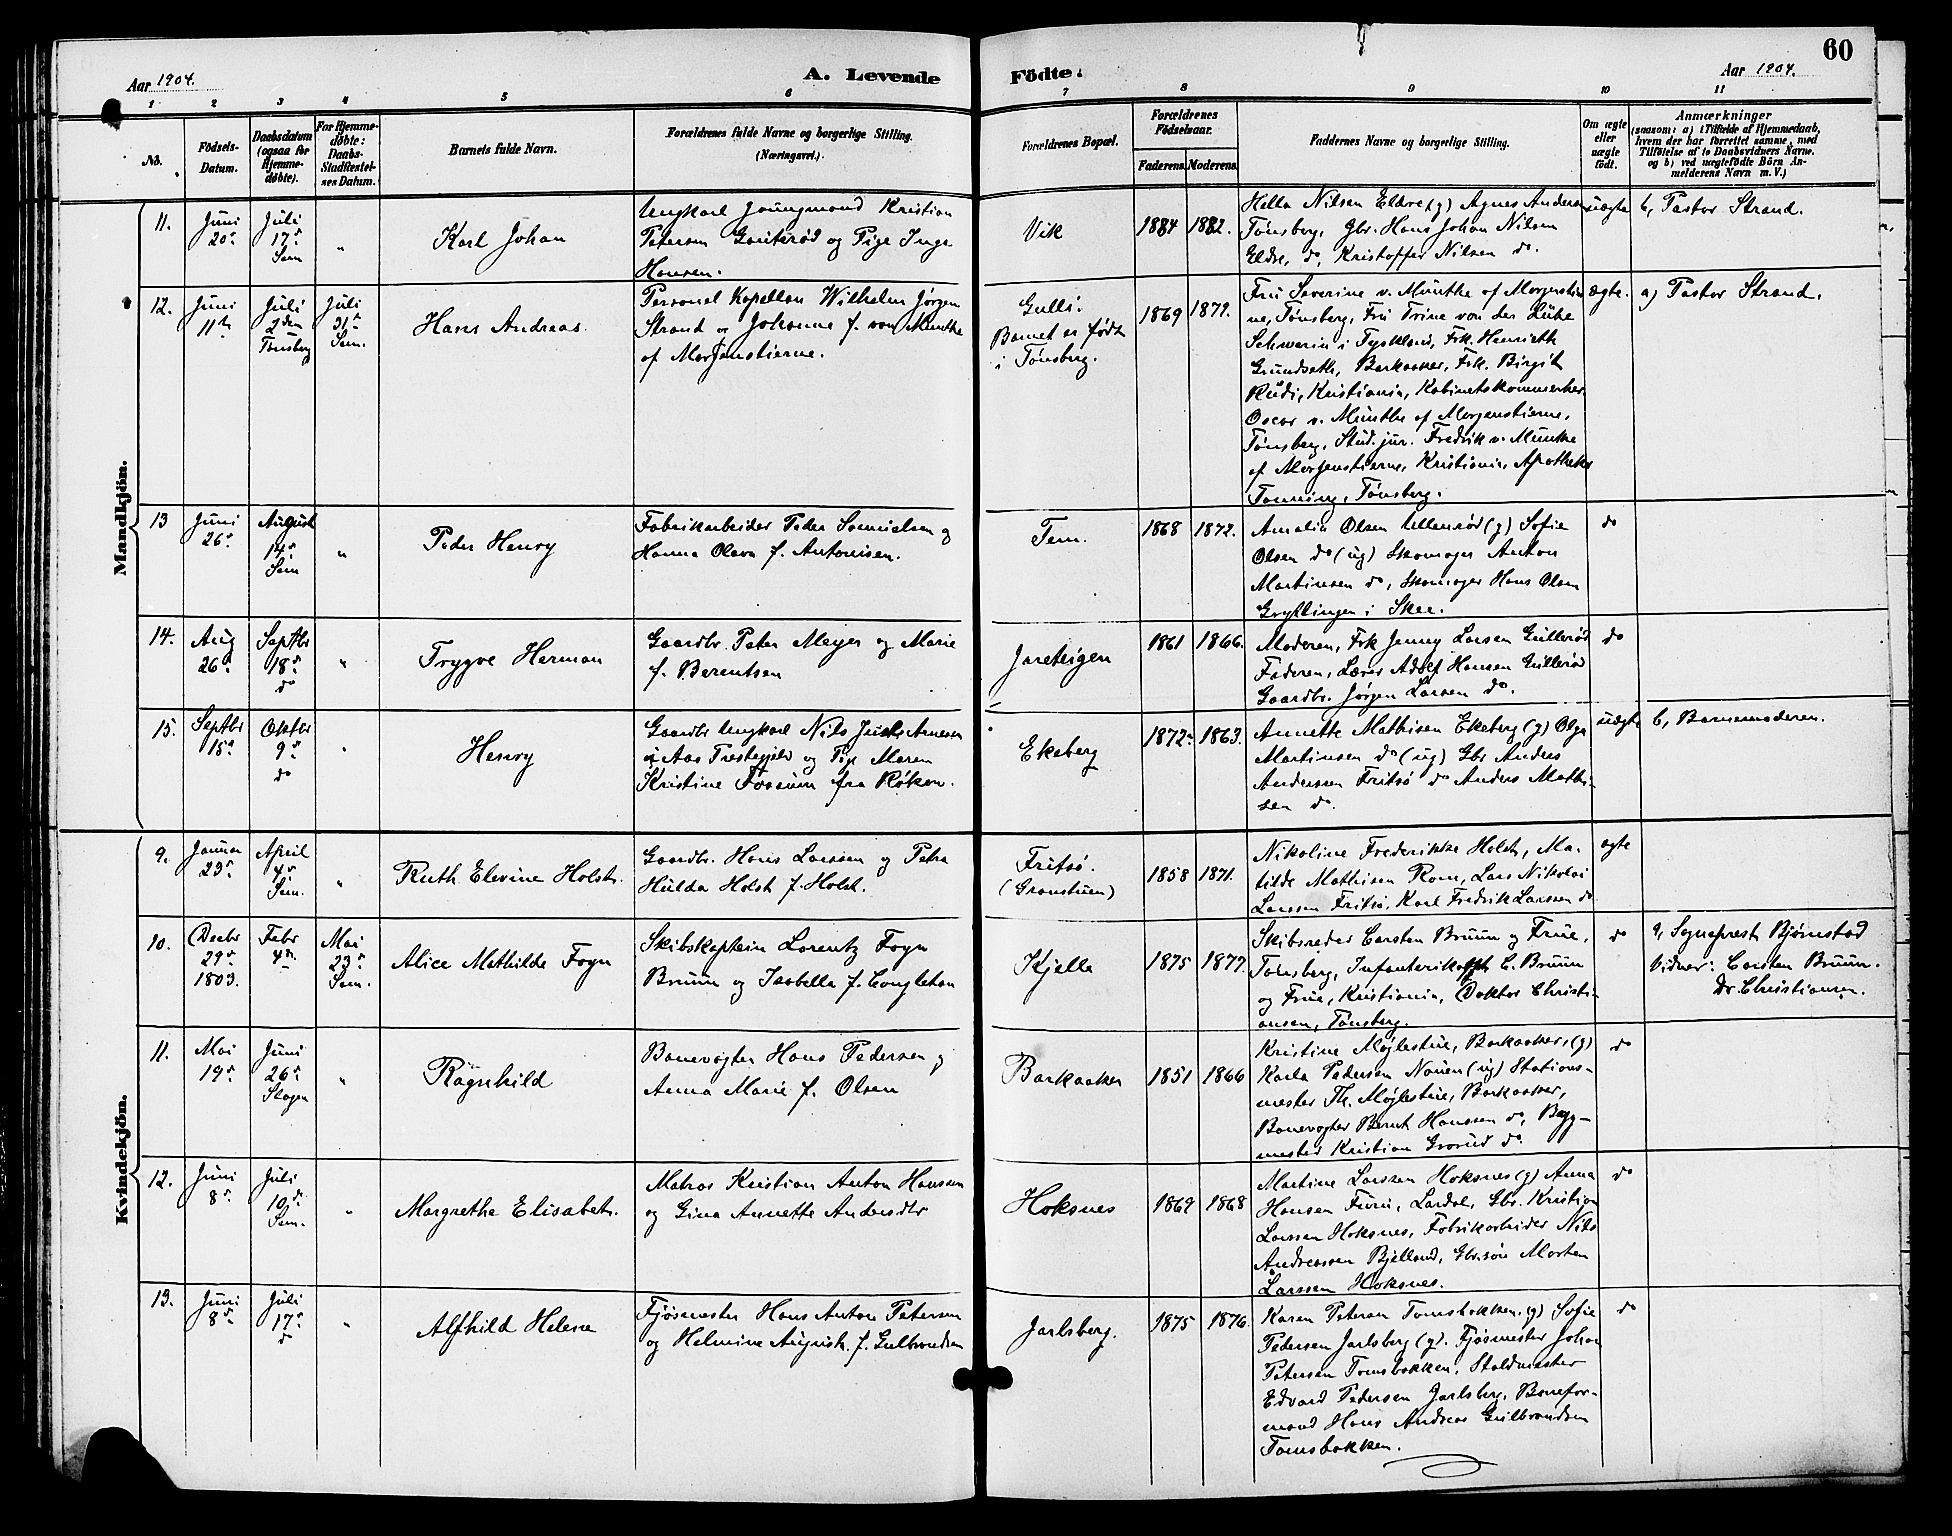 60
Aar 1904.
A. Levende Födte.
Aar 1904.
1 2 3 4 5 6 7 8 9 10 11
No.
Födsels-Datum.
Daabsdatum (ogsaa for Hjemme-döbte).
For Hjemme-döbte: Daabs-Stadfæstel-ses Datum.
Barnets fulde Navn.
Forældrenes fulde Navne og borgerlige Stilling.
(Næringsvei.)
Forældrenes Bopæl.
Forældrenes Födselsaar.
Faderens. Moderens.
Faddernes Navne og borgerlige Stilling.
Om ægte eller uægte födt.
Anmærkninger
(saasom: a) i Tilfælde af Hjemmedaab,
hvem der har forrettet samme, med
Tilföielse af to Daabsvidners Navne.
og b) ved uægtefödte Börn An-
melderens Navn m. V.)
Mandkjön.
11.
Juni
20de
Juli
17de
Sem
"
Karl Johan
Ungkarl Joungmand Kristian
Petersen Gauterød og Pige Inga
Hansen.
Vik
1884 1882.
Hella Nilsen Eldre (g) Agnes Andersen
Tønsberg, Gbr. Hans Johan Nilsen
Eldre, do, Kristoffer Nilsen do.
uægte
b, Pastor Strand.
12.
Juni
11te
Juli
2den
Tønsberg
Juli
31te
Sem.
Hans Andreas.
Personel Kapellan Wilhelm Jørgen
Strand og Johanne f. von Munthe
of Morgenstierne.
Gulli.
Barnet er født
i Tønsberg.
1869 1879.
Fru Severine v. Munthe of Morgenstier
ne, Tønsberg, Fru Trine von der Lühe
Schwerin i Tyskland, Frk. Henriette
Grundseth, Barkaaker, Frk. Birgit
Rudi, Kristiania, Kabinetskammerherr
Oscar v. Munthe of Morgenstierne,
Tønsberg, Stud. jur. Fredrik v. Munthe
of Morgenstierne, Kristiania, Apotheker
Tonning, Tønsberg.
ægte.
a) Pastor Strand.
13
Juni
26de
August
14de
Sem
"
Peder Henry
Fabrikarbeider Peder Samuelsen og
Hanna Olava f. Antonisen.
Tem.
1868 1872.
Amalia Olsen Ullenrød (g) Sofie
Olsen do (ug) Skomager Anton
Martinsen do, Skomager Hans Olsen
Gryttingen i Skee.
do
14.
Aug
26de
Septbr
18de
do
"
Trygve Herman
Gaardbr. Peter Meyer og Marie
f. Berentsen
Jareteigen
1861 1866.
Moderen, Frk Jenny Larsen Gullerød
Faderen, Lærer Adolf Hansen Gullerød
Gaardbr. Jørgen Larsen do.
do
15.
Septbr
15de
Oktbr
9de
do
"
Henry
Gaardbr Ungkarl Nils Juels Arnesen
i Aas Prestegjeld og Pige Maren
Kristine Fossum fra Røken.
Ekeberg
1872 1863.
Annette Mathisen Ekeberg (g) Olga
Martinsen do (ug) Gbr Anders
Anderssen Fritsø do Anders Mathi-
sen do.
uægte
b, Barnemoderen.
Kvindekjön.
9.
Januar
23de
April
4de
Sem.
"
Ruth Elevine Holst.
Gaardbr. Hans Larssen og Petra
Hulda Holst f. Holst.
Fritsø.
(Granstuen)
1858 1871.
Nikoline Frederikke Holst, Ma-
tilde Mathisen Rom, Lars Nikolai
Larssen Fritsø, Karl Fredrik Larssen do
ægte
10.
Decbr
29de
1803.
Febr
4de
Mai
23de
Sem.
Alice Mathilde Foyn
Skibskaptein Lorentz Foyn
Bruun og Isabella f. Congleton
Kjelle
1875 1877.
Skibsreder Carsten Bruun og Frue,
Tønsberg, Infanterikapt C. Bruun
og Frue, Kristiania, Doktor Christi-
ansen, Tønsberg.
do
a, Sogneprest Bjørnstad
Vidner: Carsten Bruun.
Dr. Christiansen.
11.
Mai
19de
Juni
26de
Skagen
"
Ragnhild
Banevogter Hans Pedersen og
Anna Marie f. Olsen
Barkaaker
1851 1866
Kristine Møglestue, Barkaaker, (g)
Karla Pedersen Nauen (ug) Stations-
mester Th. Møglestue, Barkaaker,
Banevogter Bernt Hanssen do, Byg-
mester Kristian Grorud do
do
12.
Juni
8de
Juli
10de
Sem.
"
Margrethe Elisabet.
Matros Kristian Anton Hanssen
og Gina Annette Andersdtr
Hoksnes
1869 1868
Martine Larssen Hoksnes (g) Anna
Hansen Furu, Lardal, Gbr. Kristian
Larssen Hoksnes, Fabrikarbeider Nils
Andreassen Bjelland, Gbr.søn Morten
Larssen Hoksnes.
do
13.
Juni
8de
Juli
17de
do
"
Alfhild Helene
Fjøsmester Hans Anton Petersen
og Helmine August. f. Gulbrandsen
Jarlsberg.
1875 1876.
Karen Petersen Tomsbakken, (g) Sofie
Pedersen Jarlsberg (g). Fjøsmester Johan
Petersen Tomsbakken, Staldmester
Edvard Pedersen Jarlsberg, Banefor-
mand Hans Andreas Gulbrandsen
Tomsbakken.
do